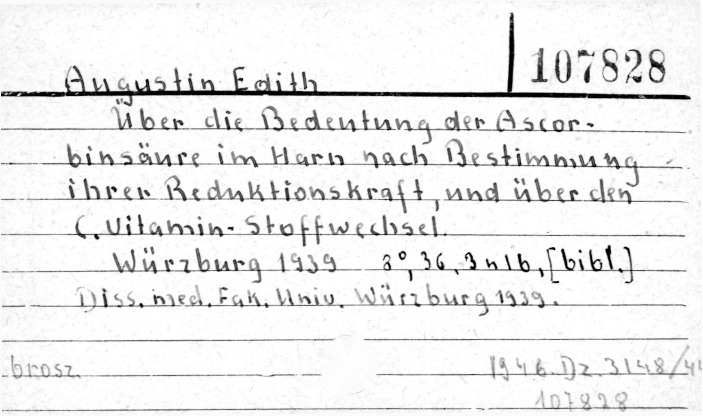 107828
Augustin Edith
Über die Bedeutung der Ascor-
binsäure im Harn nach Bestimmung
ihrer Reduktionskraft, und über den
C. Vitamin-Stoffwechsel.
Würzburg 1939 8°, 36, 3 nlb, [bibl.]
Diss. med. Fak. Univ. Würzburg 1939.
brosz. 1946. Dz. 3148/44
107828